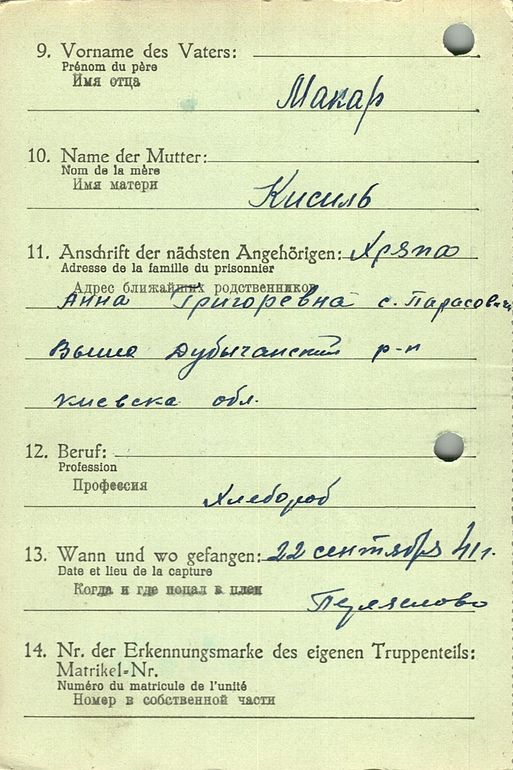 9. Vorname des Vaters:
Prénom du père
Имя отца
Макар
10. Name der Mutter:
Nom de la mère
Имя матери
Кисиль
11. Anschrift der nächsten Angehörigen: Хряпа
Adresse de la famille du prisonnier
Адрес ближайших родственников
Анна Григоревна с. Парасович
Выше Дубычанский р-н
киевска обл.
12. Beruf:
Profession
Профессия
Хлебороб
13. Wann und wo gefangen: 22 сентября 41 г.
Date et lieu de la capture
Когда и где попал в плен
14. Nr. der Erkennungsmarke des eigenen Truppenteils:
Matrikel-Nr.
Numéro du matricule de l'unité
Номер в собственной части